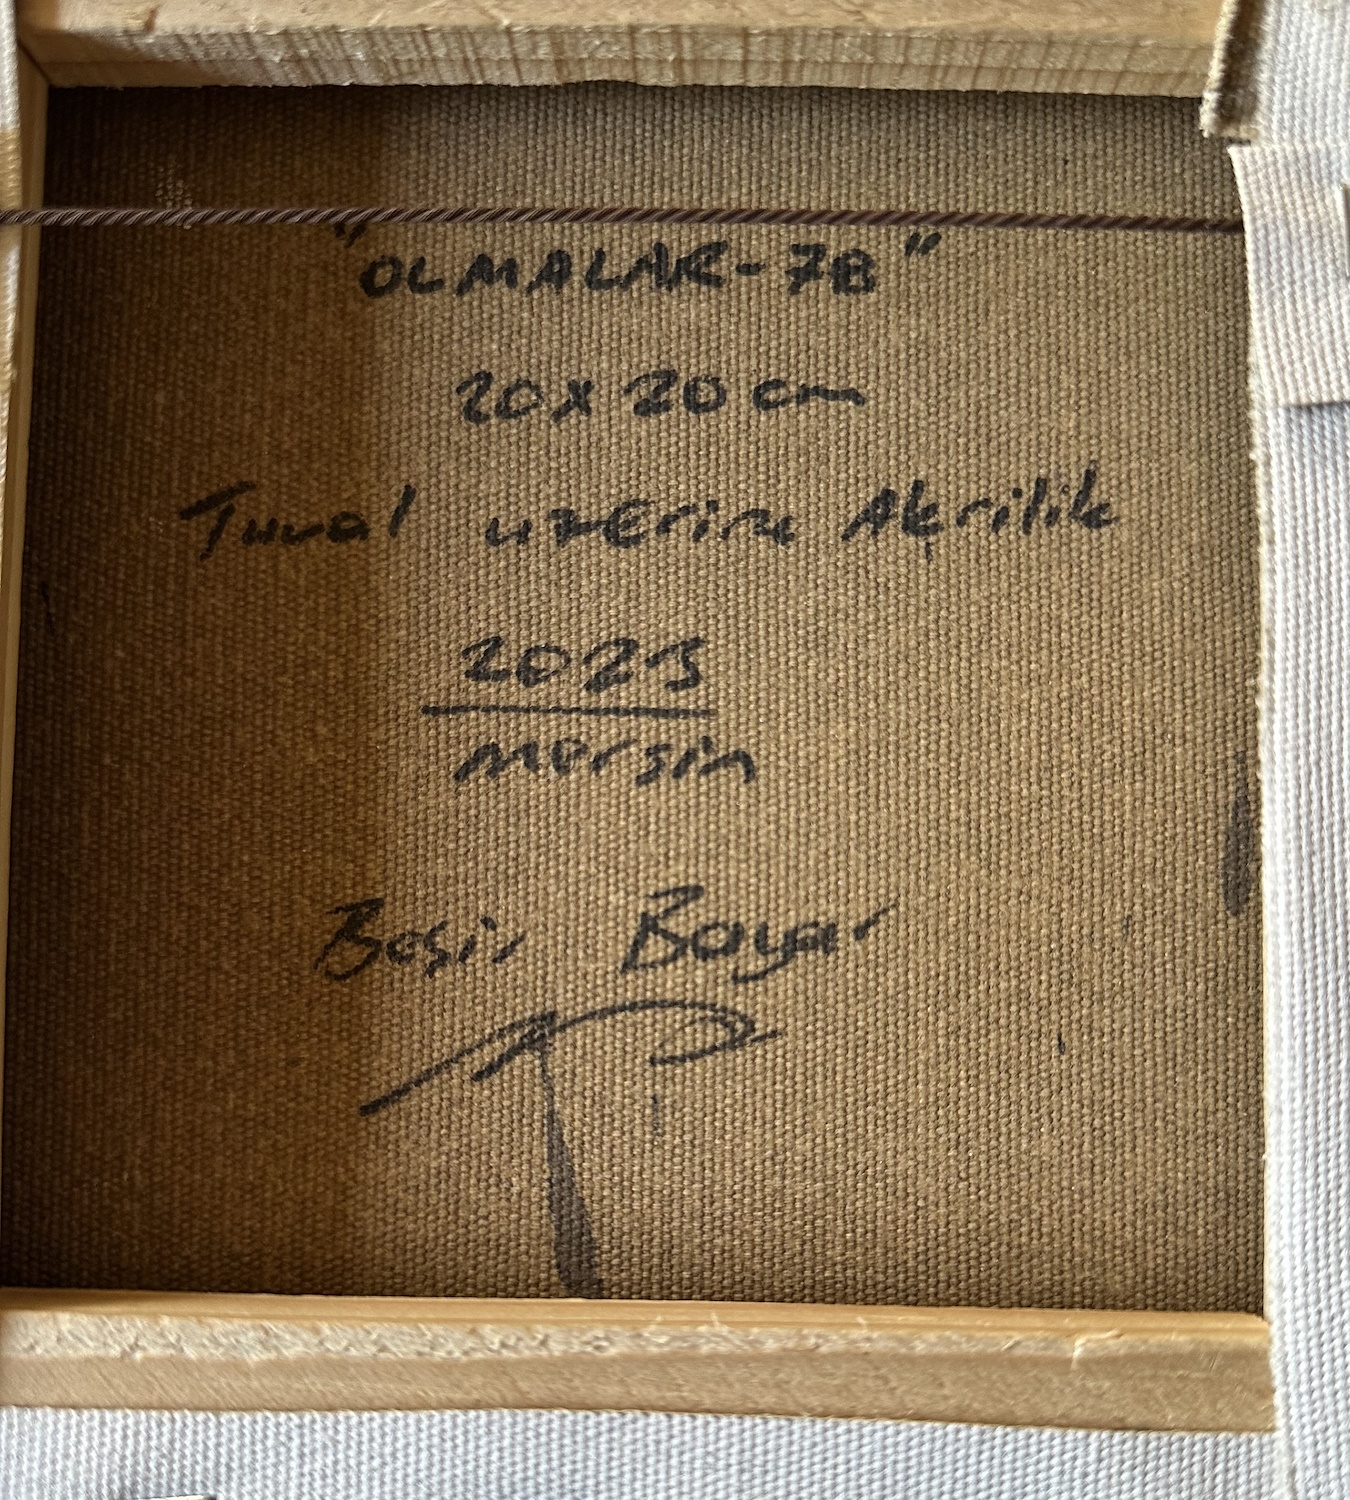 "OLMALAR-7B"
20x20cm
Tuval üzerine Akrilik
2023
mersin
Beşir Bayar